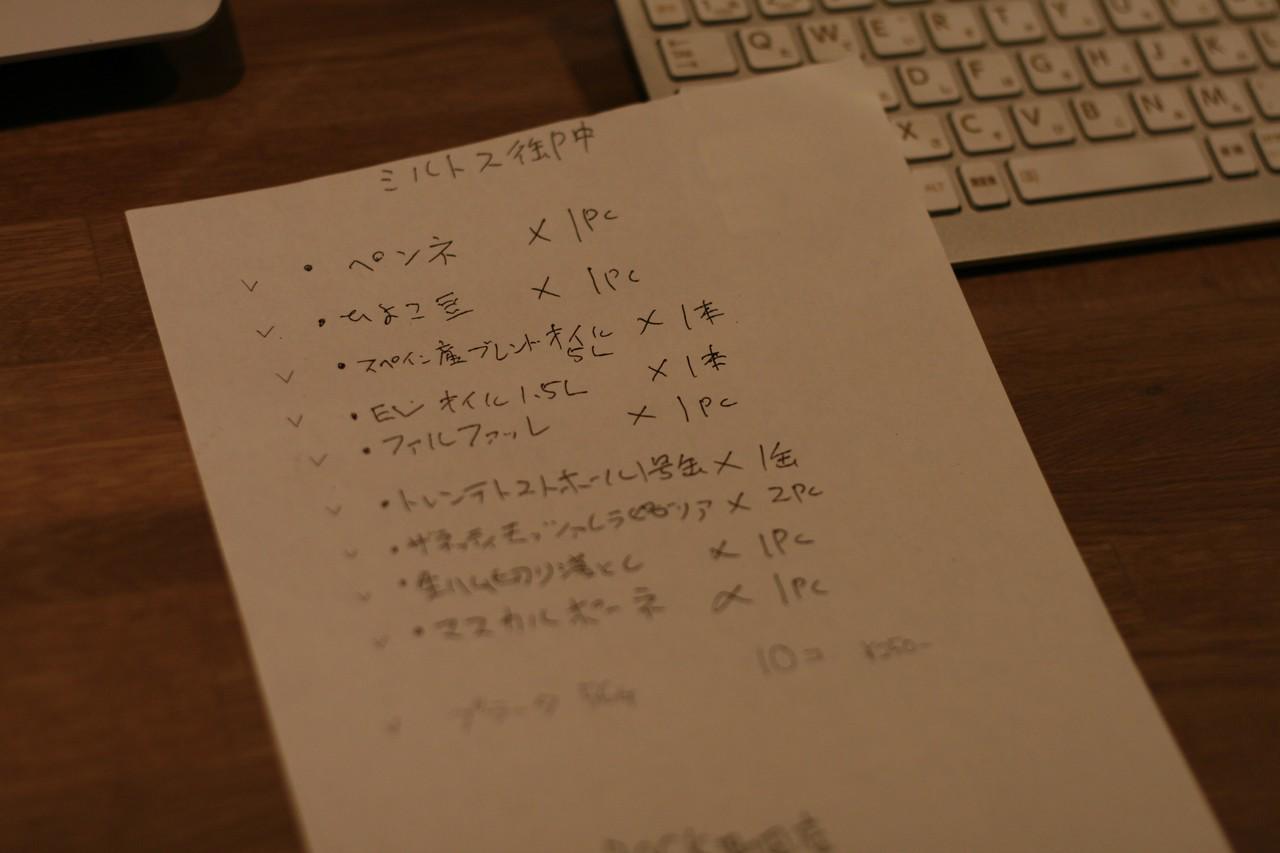 ミルトス御中
・ペンネ × 1Pc
・ひよこ豆 × 1Pc
・スペイン産ブレンドオイル 5L × 1本
・EVオイル1.5L × 1本
・ファルファッレ × 1Pc
・トレンテトマトホール1号缶 × 1缶
・ザネッティモッツァレラ × 2Pc
・生ハム切り落とし × 1Pc
・マスカルポーネ × 1Pc
10コ ¥250-
ブラータ
Q W E R T Y U
D F G H J K L
X C V B N M
ALT